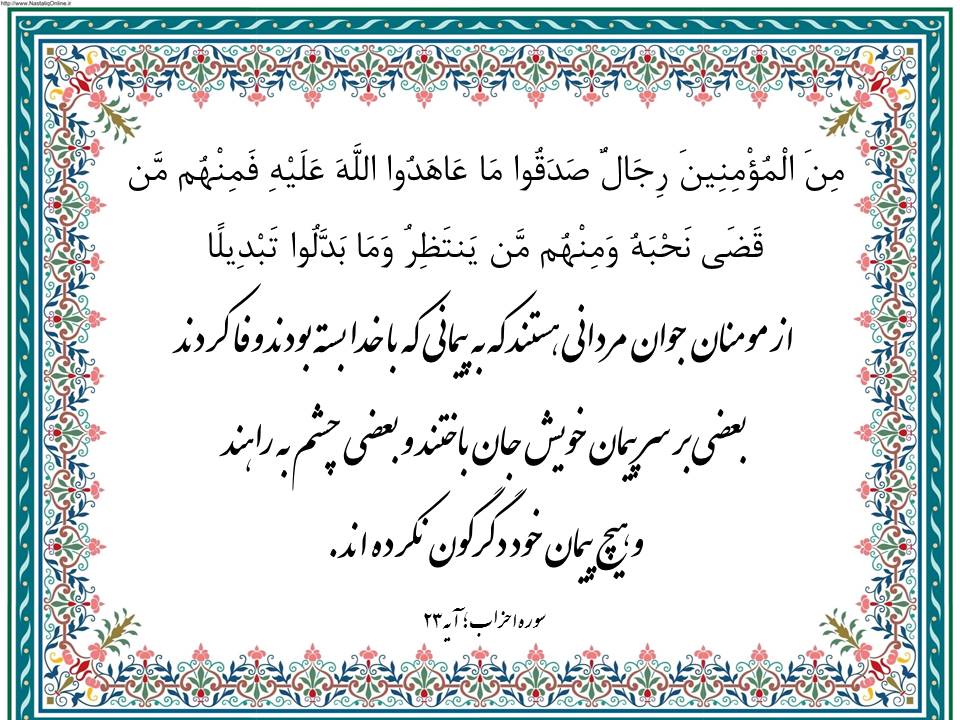 http://www.NastaliqOnline.ir
مِنَ الْمُؤْمِنِينَ رِجَالٌ صَدَقُوا مَا عَاهَدُوا اللَّهَ عَلَيْهِ فَمِنْهُم مَّن
قَضَى نَحْبَهُ وَمِنْهُم مَّن يَنتَظِرُ وَمَا بَدَّلُوا تَبْدِيلًا
از مومنان جوان مردانی هستند که به پیمانی که با خدا بسته بودند وفا کردند
بعضی بر سر پیمان خویش جان باختند و بعضی چشم به راهند
و هیچ پیمان خود دگرگون نکرده اند.
سوره احزاب؛ آیه ۲۳